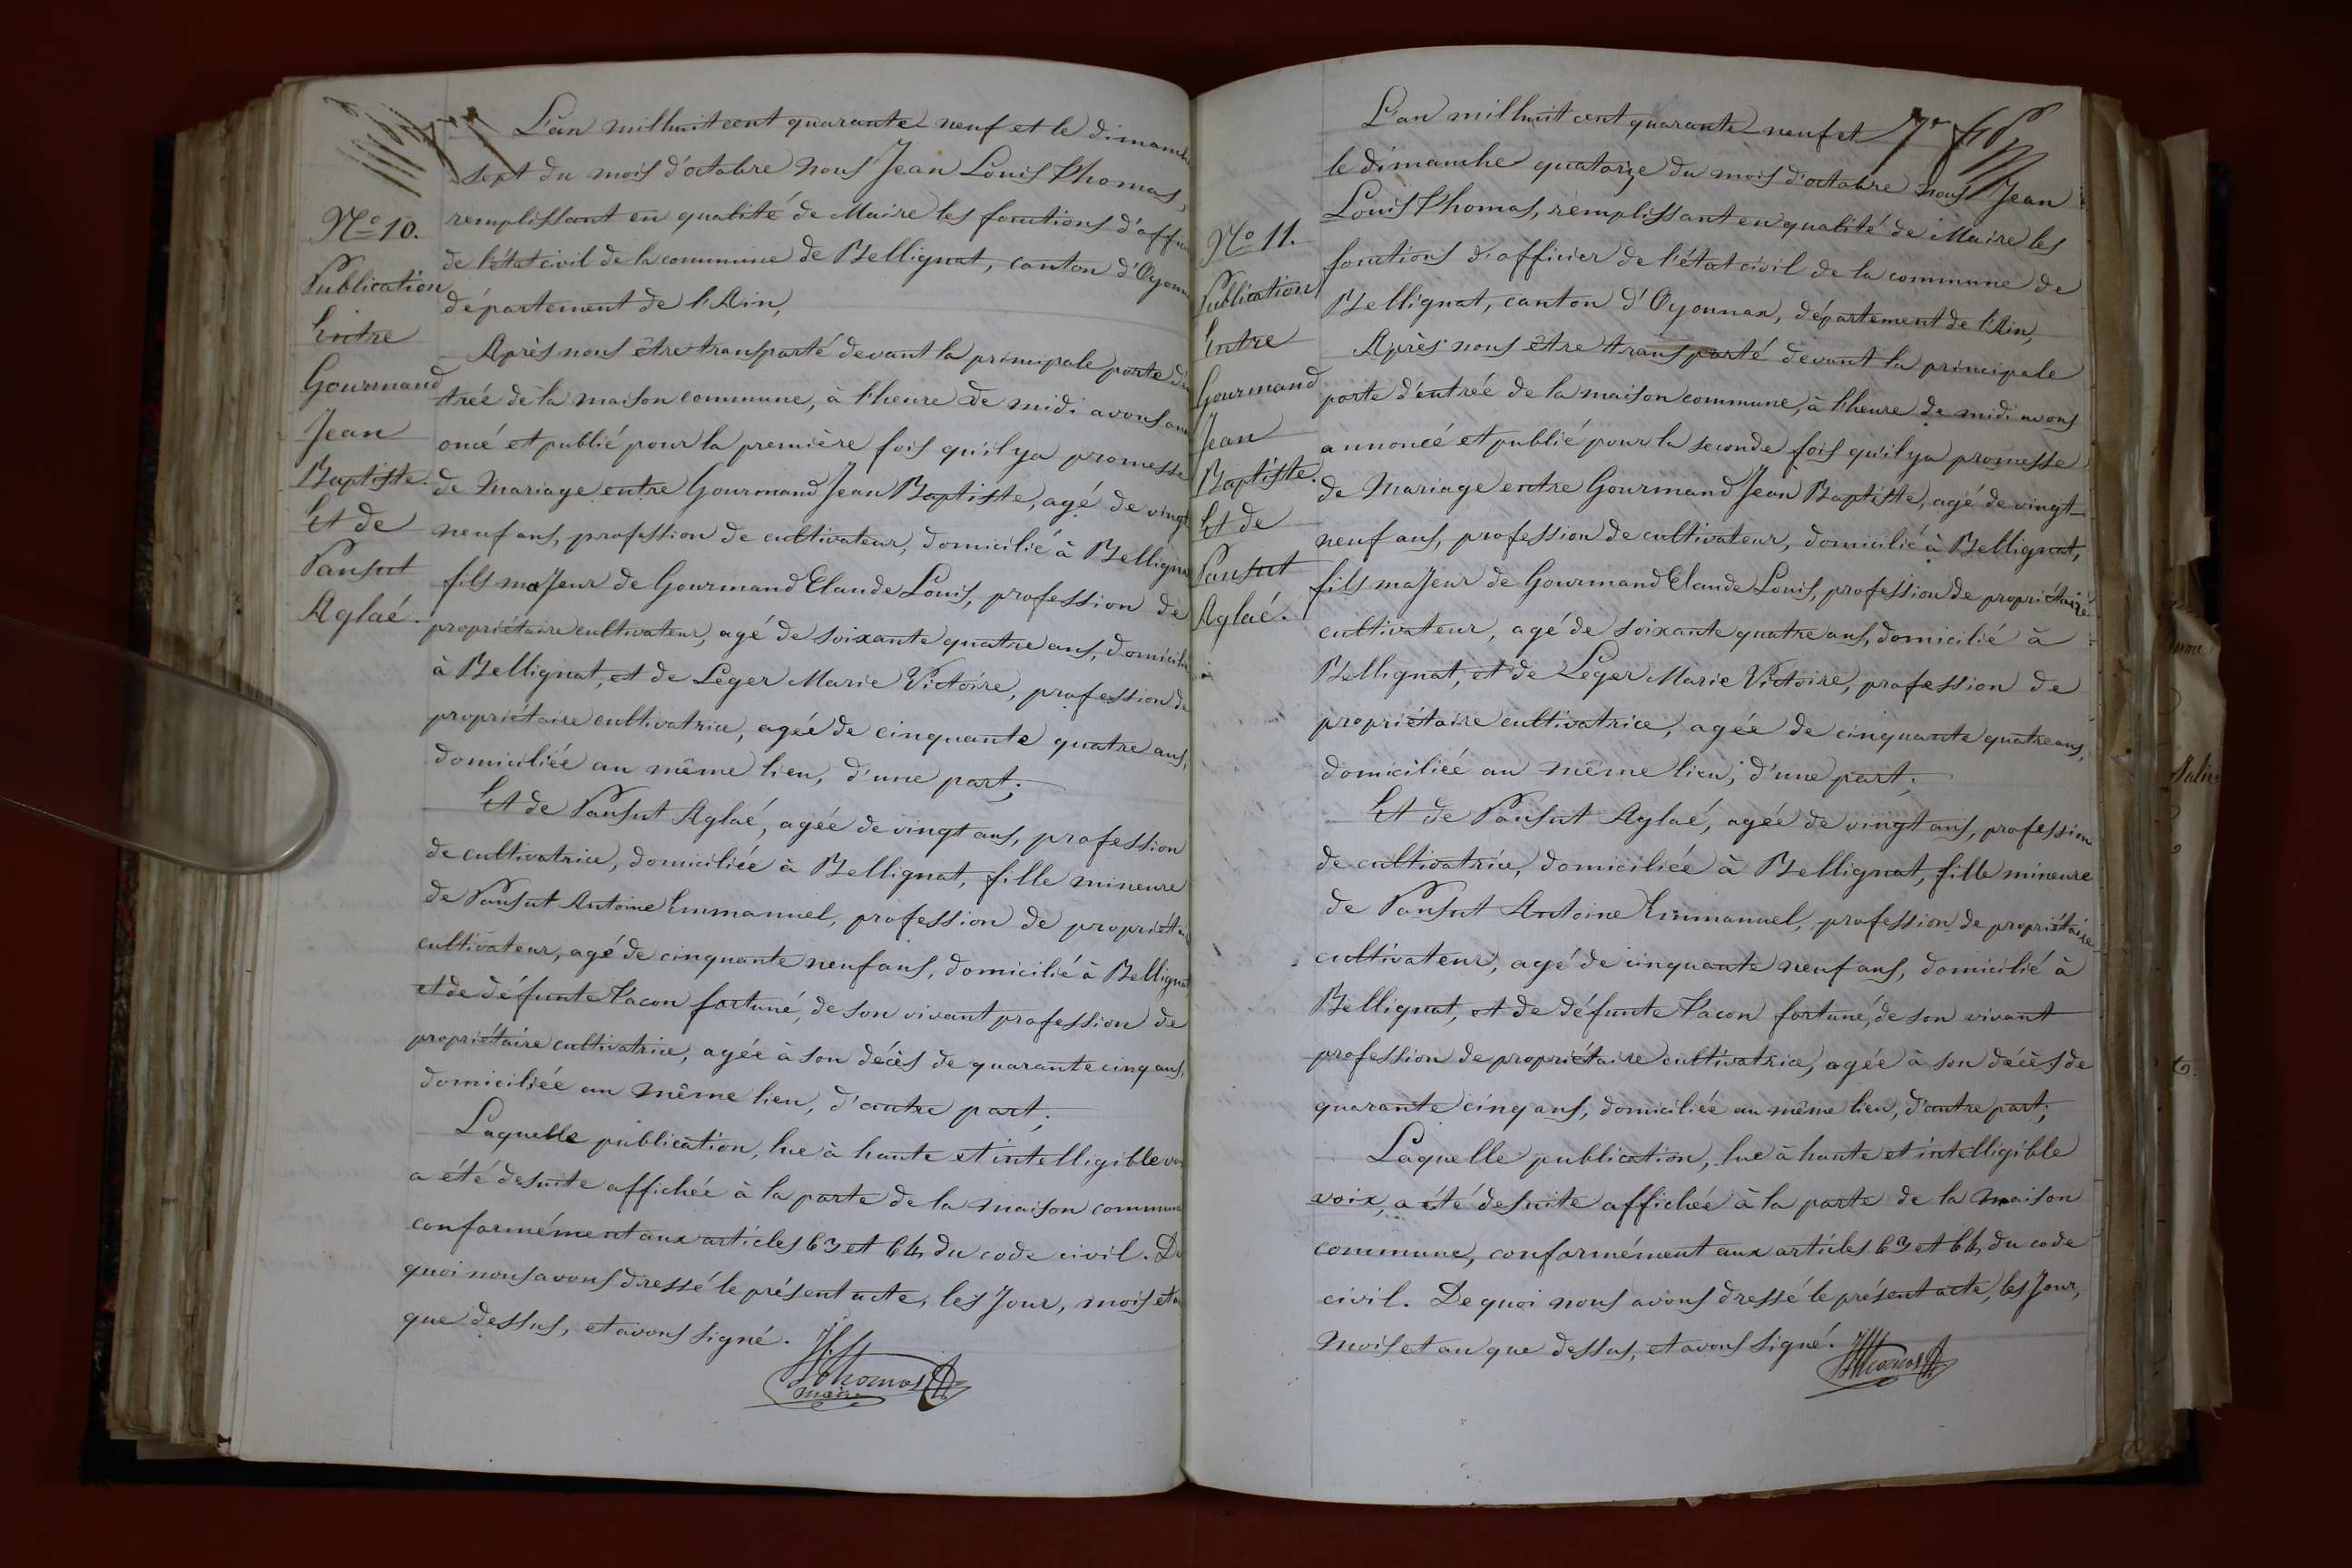 L'an mil huit cent quarante neuf et le dimanche
sept du mois d'octobre nous Jean Louis Thomas,
remplissant en qualité de Maire les fonctions d'offici
de l'état civil de la commune de Bellignat, canton d'Oyonn
département de l'Ain,
Après nous être transporté devant la principale porte d'en
trée de la maison commune, à l'heure de midi avons ann
oncé et publié pour la première fois qu'il y a promesse
de Mariage entre Gourmand Jean Baptiste, agé de vingt
neuf ans, profession de cultivateur, domicilié à Bellignat
fils majeur de Gourmand Claude Louis, profession de
propriétaire cultivateur, agé de soixante quatre ans, domicilié
à Bellignat, et de Leger Marie Victoire, profession de
propriétaire cultivatrice, agée de cinquante quatre ans,
domiciliée au même lieu, d'une part;
Et de Pansut Aglaé, agée de vingt ans, profession
de cultivatrice, domiciliée à Bellignat, fille mineure
de Pansut Antoine Emmanuel, profession de propriétaire
cultivateur, agé de cinquante neuf ans, domicilié à Bellignat
et de défunte Tacon fortuné, de son vivant profession de
propriétaire cultivatrice, agée à son décès de quarante cinq ans,
domiciliée au même lieu, d'autre part;
Laquelle publication, lue à haute et intelligible voi
a été desuite affichée à la porte de la maison commune
conformément aux articles 63 et 64 du code civil. De
quoi nous avons dressé le présent acte, les Jour, mois et an
que dessus, et avons signé.
JLThomas
maire
N° 10.
Publication
Entre
Gourmand
Jean
Baptiste.
Et de
Pansut
Aglaé.
L'an mil huit cent quarante neuf et
le dimanche quatorze du mois d'octobre nous Jean
Louis Thomas, remplissant en qualité de Maire les
fonctions d'officier de l'état civil de la commune de
Bellignat, canton d'Oyonnax, département de l'Ain,
Après nous être transporté devant la principale
porte d'entrée de la maison commune, à l'heure de midi avons
annoncé et publié pour la seconde fois qu'il y a promesse
de Mariage entre Gourmand Jean Baptiste, agé de vingt
neuf ans, profession de cultivateur, domicilié à Bellignat,
fils majeur de Gourmand Claude Louis, profession de propriétaire
cultivateur, agé de soixante quatre ans, domicilié à
Bellignat, et de Leger Marie Victoire, profession de
propriétaire cultivatrice, agée de cinquante quatre ans,
domiciliée au même lieu, d'une part;
Et de Pansut Aglaé, agée de vingt ans, profession
de cultivatrice, domiciliée à Bellignat, fille mineure
de Pansut Antoine Emmanuel, profession de propriétaire
cultivateur, agé de cinquante neuf ans, domicilié à
Bellignat, et de défunte Tacon fortuné, de son vivant
profession de propriétaire cultivatrice, agée à son décès de
quarante cinq ans, domiciliée au même lieu, d'autre part;
Laquelle publication, lue à haute et intelligible
voix, a été desuite affichée à la porte de la maison
commune, conformément aux articles 63 et 64 du code
civil. De quoi nous avons dressé le présent acte, les Jour,
mois et an que dessus, et avons signé.
JLThomas
N° 11.
Publication
Entre
Gourmand
Jean
Baptiste.
Et de
Pansut
Aglaé.